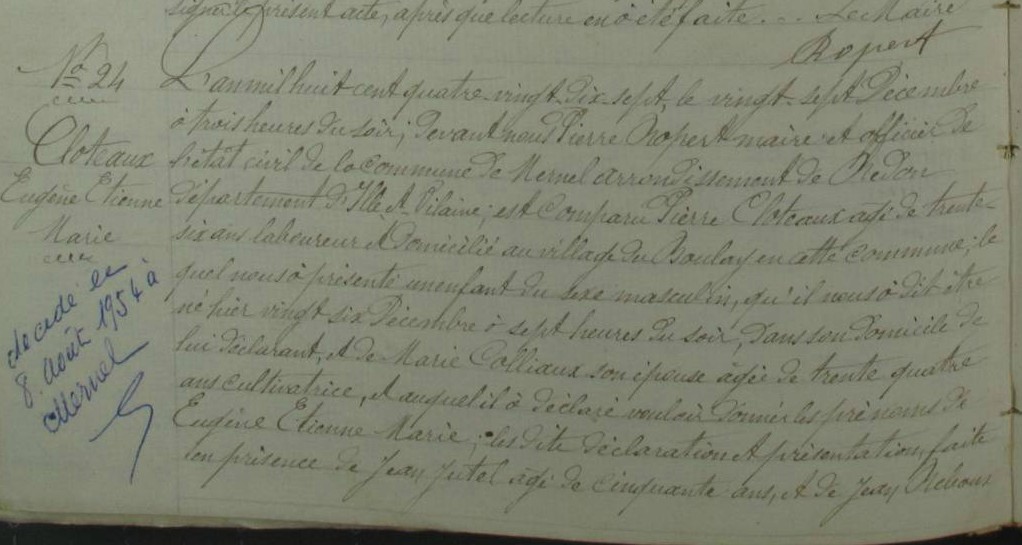 signé le présent acte, après que lecture en a été faite. .. Le Maire
Ropert
No 24
Cloteaux
Eugène Etienne
Marie
décédé le
8 août 1954 à
Mernel
L'an mil huit cent quatre-vingt-dix-sept, le vingt-sept Décembre
à trois heures du soir; devant nous Pierre Ropert maire et officier de
l'état civil de la commune de Mernel arrondissement de Redon
département d'Ille et Vilaine; est comparu Pierre Cloteaux agé de trente-
six ans laboureur et domicilié au village du Boulay en cette commune; le
quel nous à présenté un enfant du sexe masculin, qu'il nous à dit être
né hier vingt six Décembre à sept heures du soir, dans son domicile de
lui déclarant, et de Marie Colliaux son épouse âgée de trente quatre
ans cultivatrice, et auquel il à déclaré vouloir donner les prénoms de
Eugène Etienne Marie; les dite déclaration et présentation, faite
en présence de Jean Jutel agé de cinquante ans, et de Jean